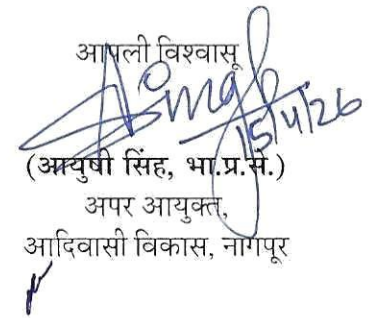 आपली विश्वासू
Asingh
15/4/26
(आयुषी सिंह, भा.प्र.से.)
अपर आयुक्त,
आदिवासी विकास, नागपूर